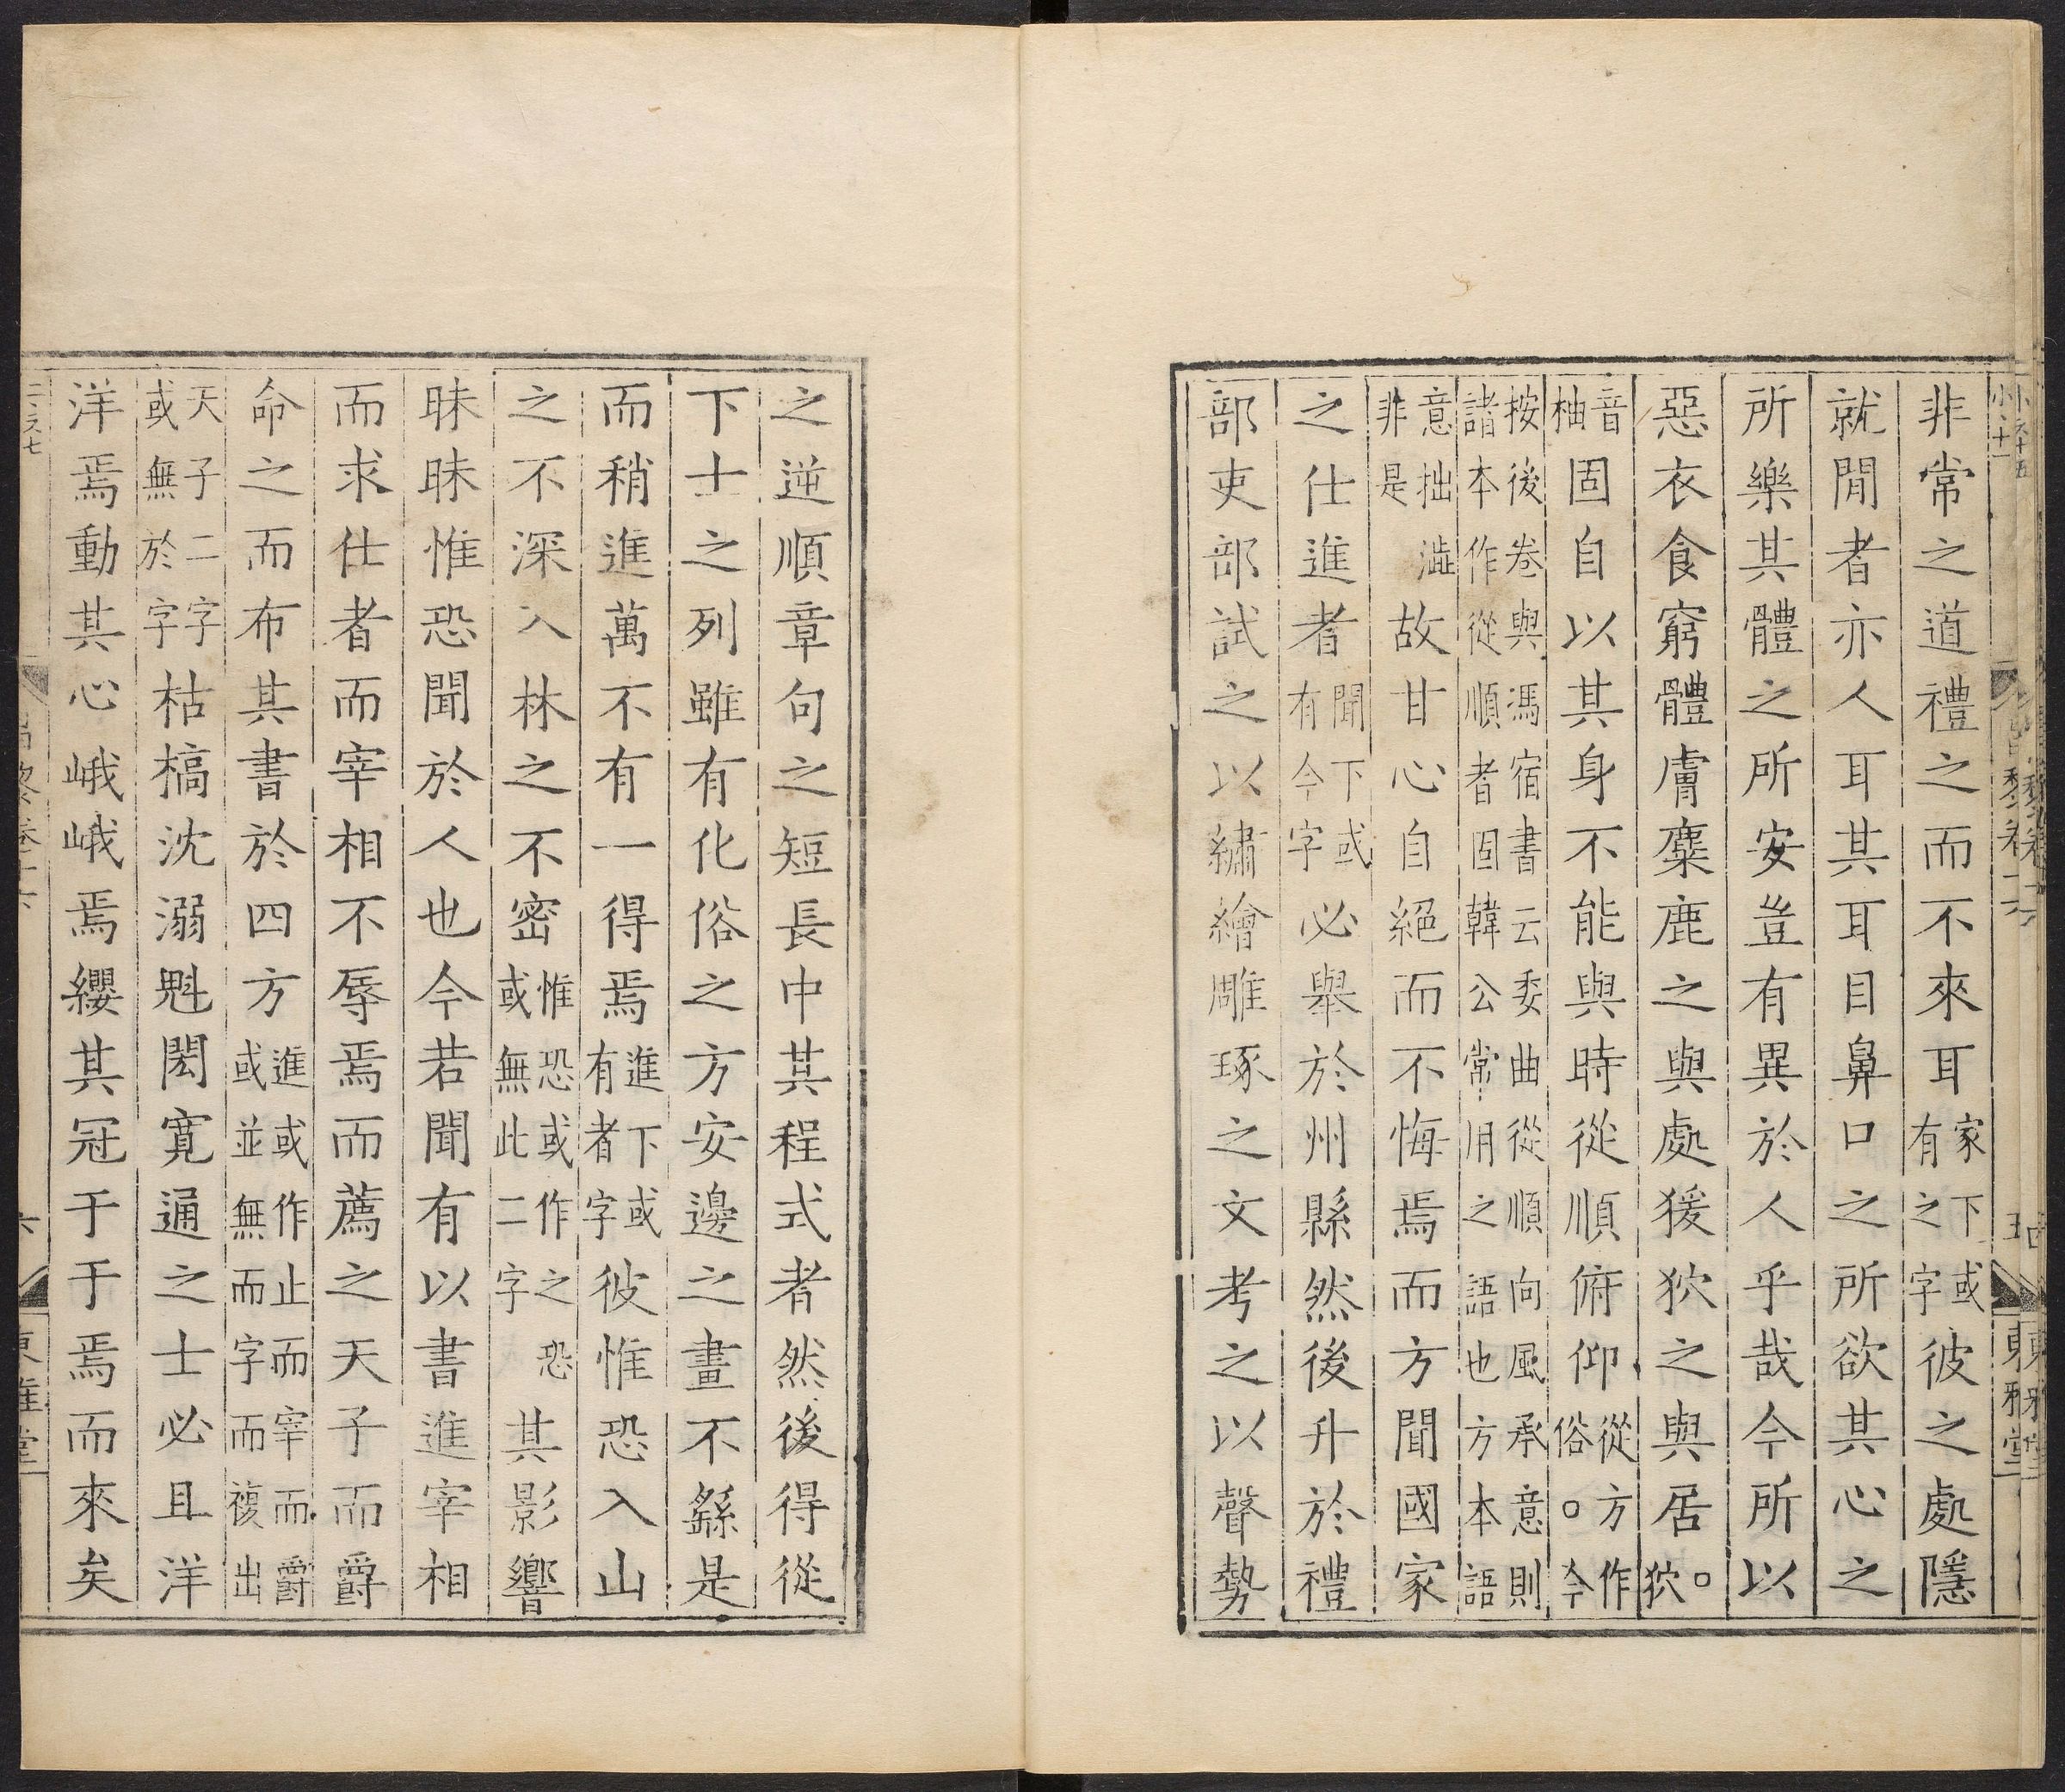 昌黎卷十六 五 東雅堂
非常之道禮之而不來耳家下或有之字彼之處隱
就閒者亦人耳其耳目鼻口之所欲其心之
所樂其體之所安豈有異於人乎哉今所以
惡衣食窮體膚麋鹿之與處猨狖之與居○狖
音柚固自以其身不能與時從順俯仰從方作俗○今
按後卷與馮宿書云委曲從順向風承意則諸本作從順者固韓公常用之語也方本語
意拙澁非是故甘心自絕而不悔焉而方聞國家
之仕進者聞下或有今字必舉於州縣然後升於禮
部吏部試之以繡繪雕琢之文考之以聲勢
之逆順章句之短長中其程式者然後得從
下士之列雖有化俗之方安邊之畫不繇是
而稍進萬不有一得焉進下或有者字彼惟恐入山
之不深入林之不密惟恐或作之恐或無此二字其影響
昧昧惟恐聞於人也今若聞有以書進宰相
而求仕者而宰相不辱焉而薦之天子而爵
命之而布其書於四方進或作止而宰而爵或並無而字而複出
天子二字或無於字枯槁沈溺魁閎寬通之士必且洋
洋焉動其心峨峨焉纓其冠于于焉而來矣
六 東雅堂